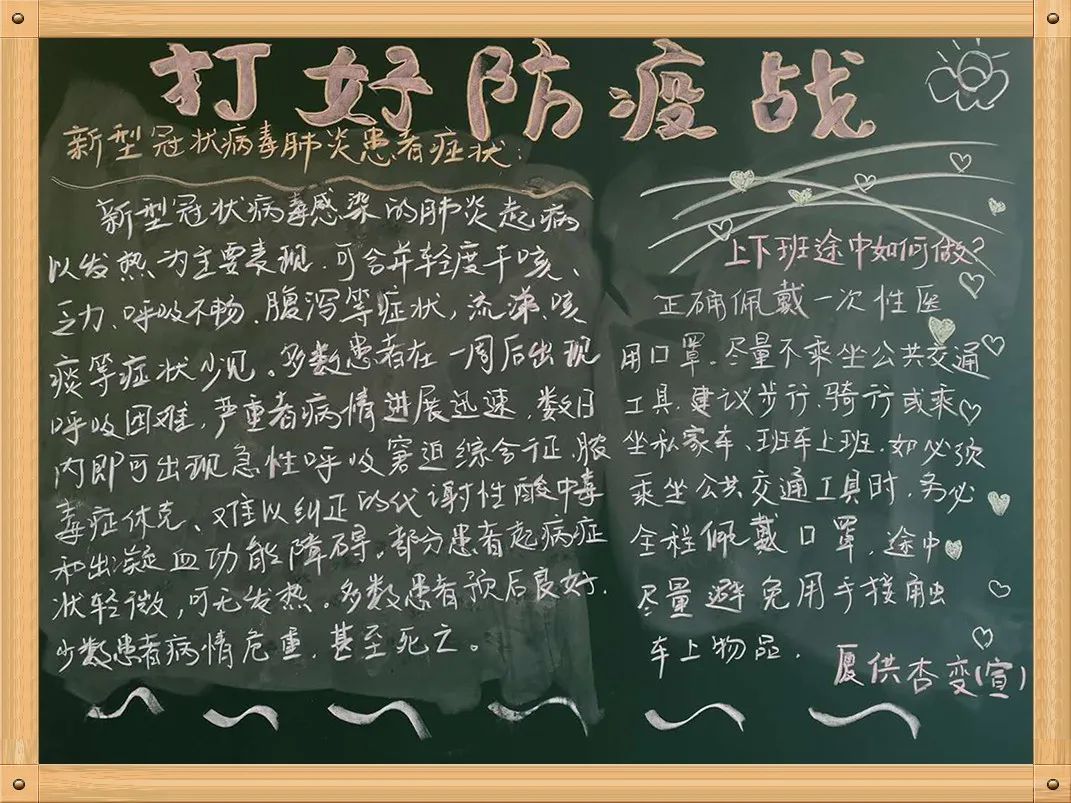 打好防疫战
新型冠状病毒肺炎患者症状:
新型冠状病毒感染的肺炎起病
以发热为主要表现,可合并轻度干咳、
乏力、呼吸不畅、腹泻等症状,流涕、咳
痰等症状少见。多数患者在一周后出现
呼吸困难,严重者病情进展迅速,数日
内即可出现急性呼吸窘迫综合征、脓
毒症休克、难以纠正的代谢性酸中毒
和出凝血功能障碍。部分患者起病症
状轻微,可无发热。多数患者预后良好,
少数患者病情危重,甚至死亡。
上下班途中如何做?
正确佩戴一次性医
用口罩。尽量不乘坐公共交通
工具,建议步行、骑行或乘
坐私家车、班车上班。如必须
乘坐公共交通工具时,务必
全程佩戴口罩,途中
尽量避免用手接触
车上物品。
厦供杏变(宣)